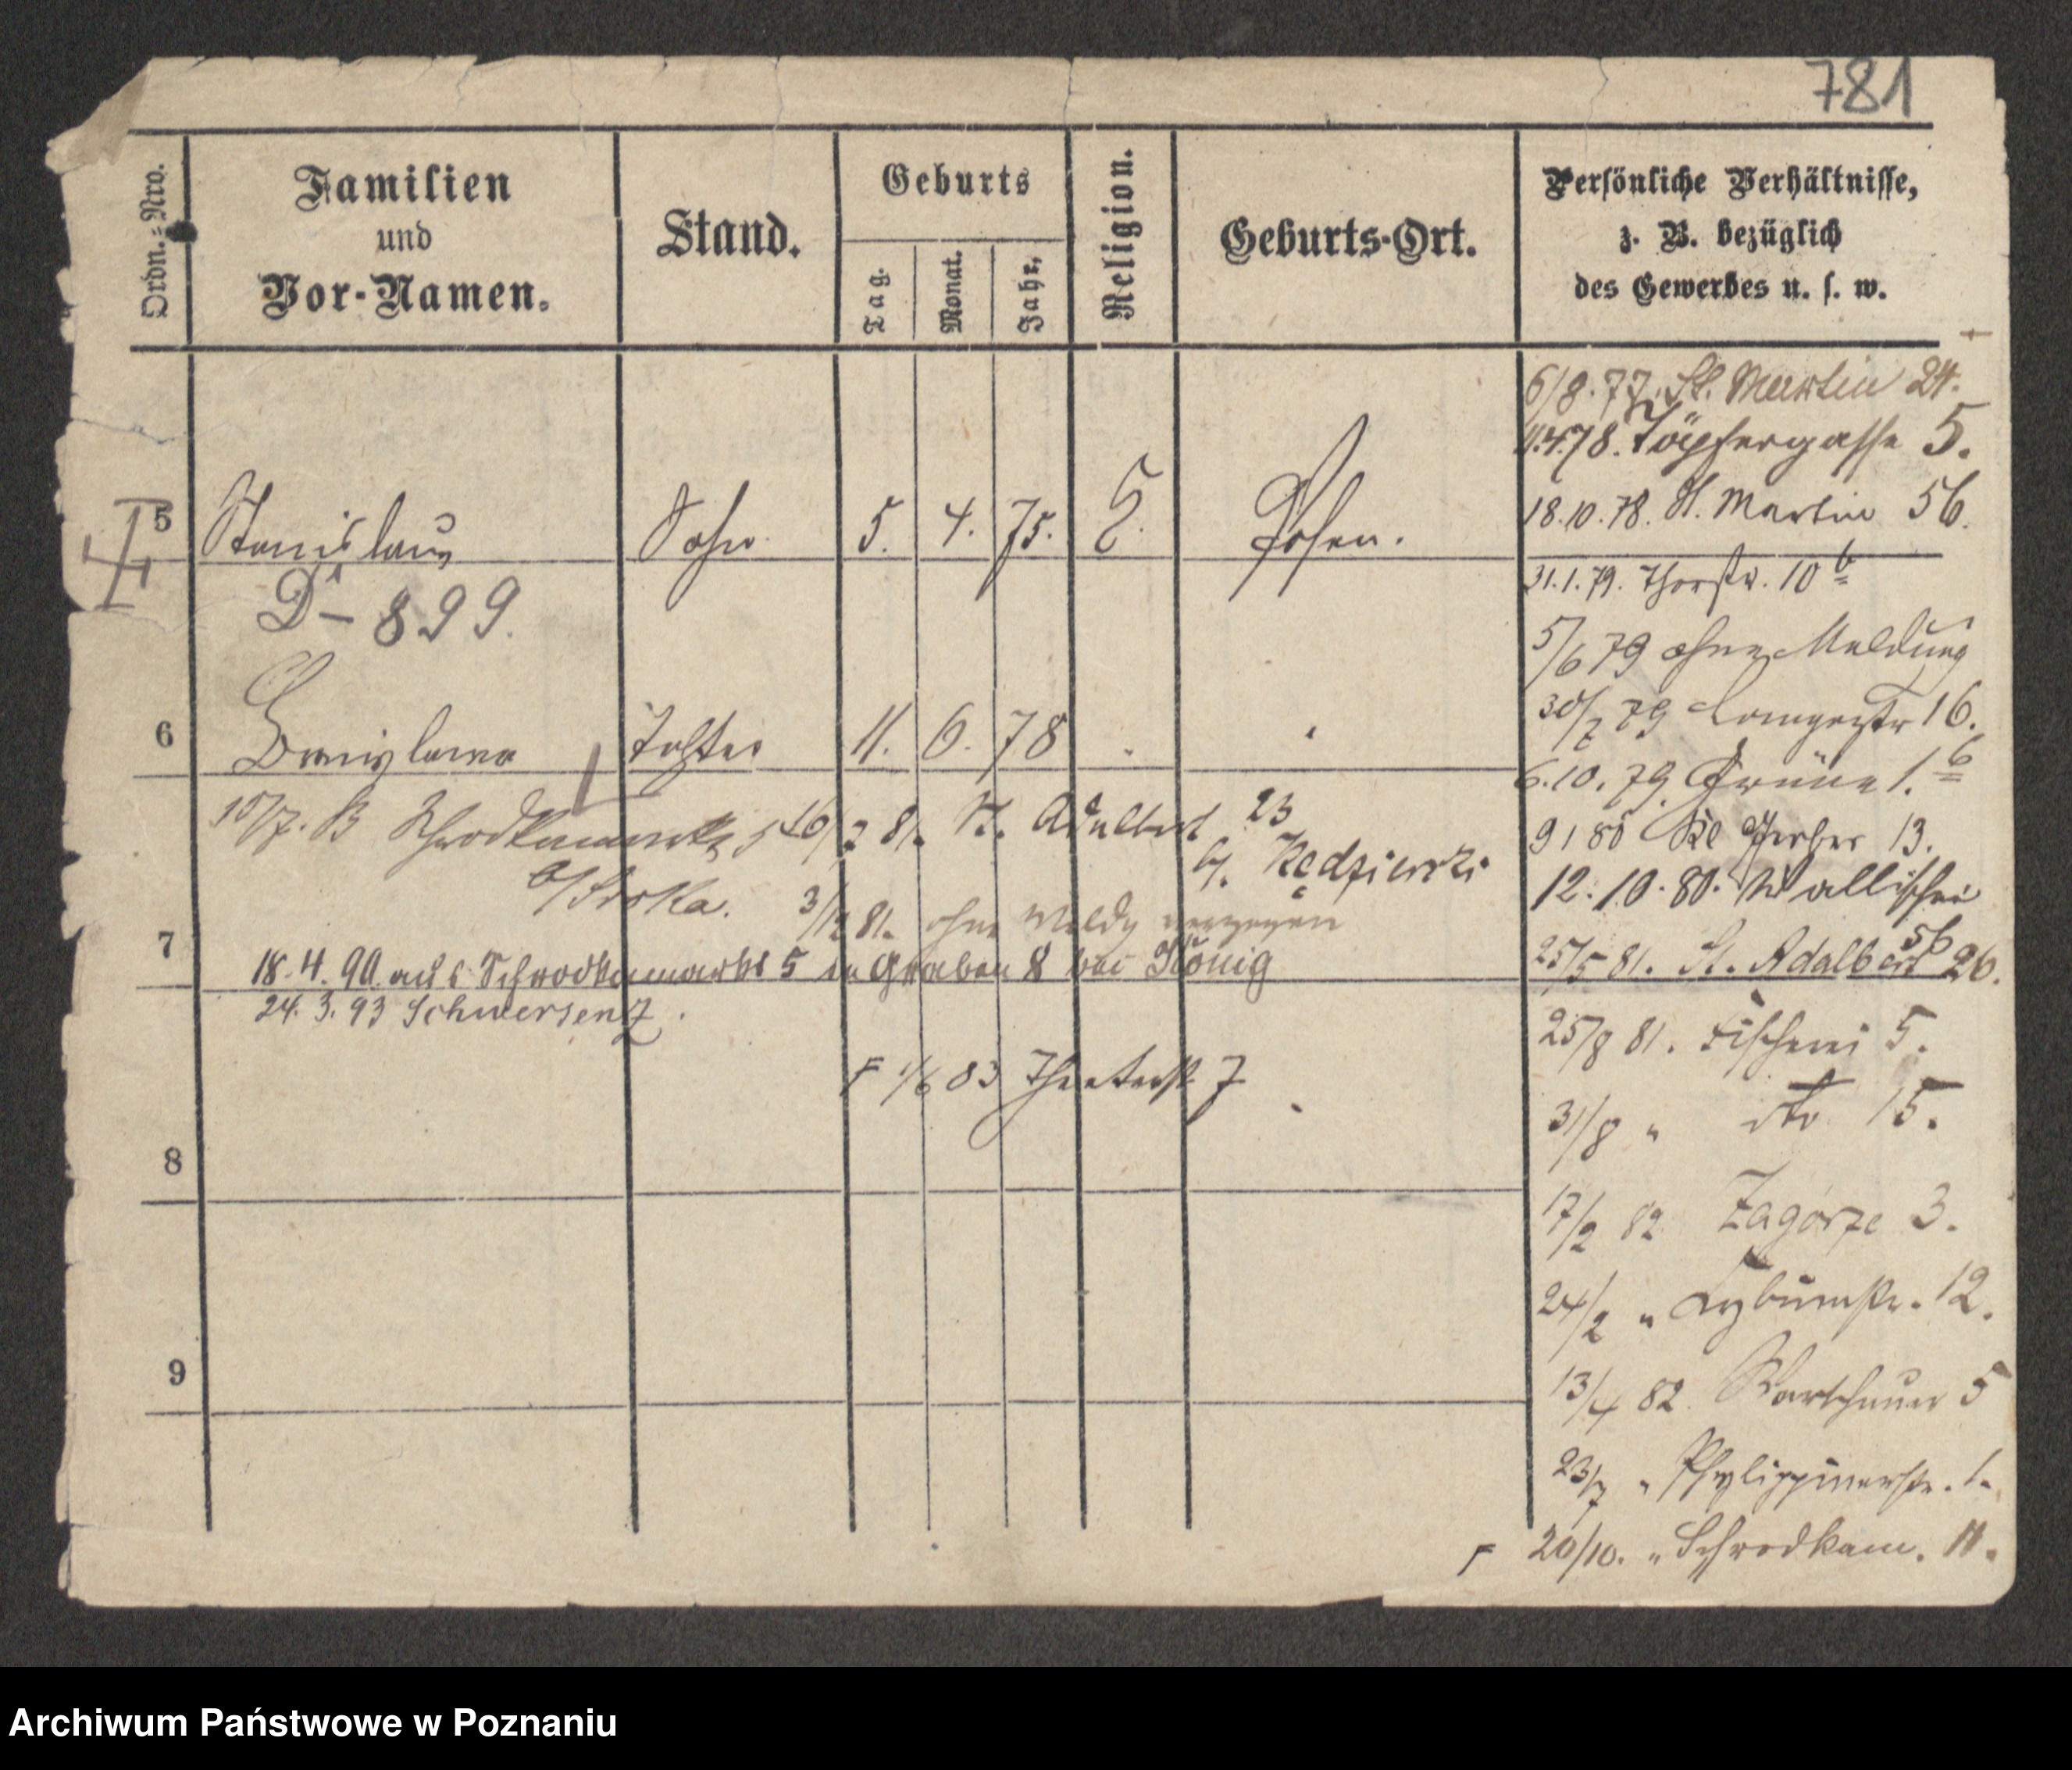 781
Ordn.-Nro.
Familien
und
Vor-Namen.
Stand.
Geburts
Tag.
Monat.
Jahr.
Religion.
Geburts-Ort.
Persönliche Verhältnisse,
z. B. bezüglich
des Gewerbes u. s. w.
6/8.77. St. Martin 24.
11.4.78. Töpfergasse 5.
18.10.78. St. Martin 56.
5 Stanislaus Sohn 5. 4. 75. Posen.
31.1.79. Thorstr. 10 b
D - 899.
5/6 79 ohne Meldung
30/7 79 Langestr 16.
6 Bronislawa Tochter 11. 6. 78
6.10.79. Grüne 1. b
15/7. B Schrodkamarkt 5 16/7 81. St. Adalbert 23
b/ Kędzierski
9 1 80 Kl Gerber 13.
b/ Sroka.
12.10.80. Wallischei
56
3/12 81. ohne Meldg verzogen
7
25/5 81. St. Adalbert 26.
18.4.90. aus Schrodkamarkt 5 in Graben 8 bei König
24. 3. 93 Schwersenz.
25/8 81. Fischerei 5.
F 1/6 83 Theaterstr 7
31/8 " dto 15.
8
17/2 82 Zagórze 3.
24/2 " 12.
9
13/4 82. Warschauer 5
23/7 " Phylippinerstr. 1.
F 20/10. " Schrodkam. 11.
Archiwum Państwowe w Poznaniu